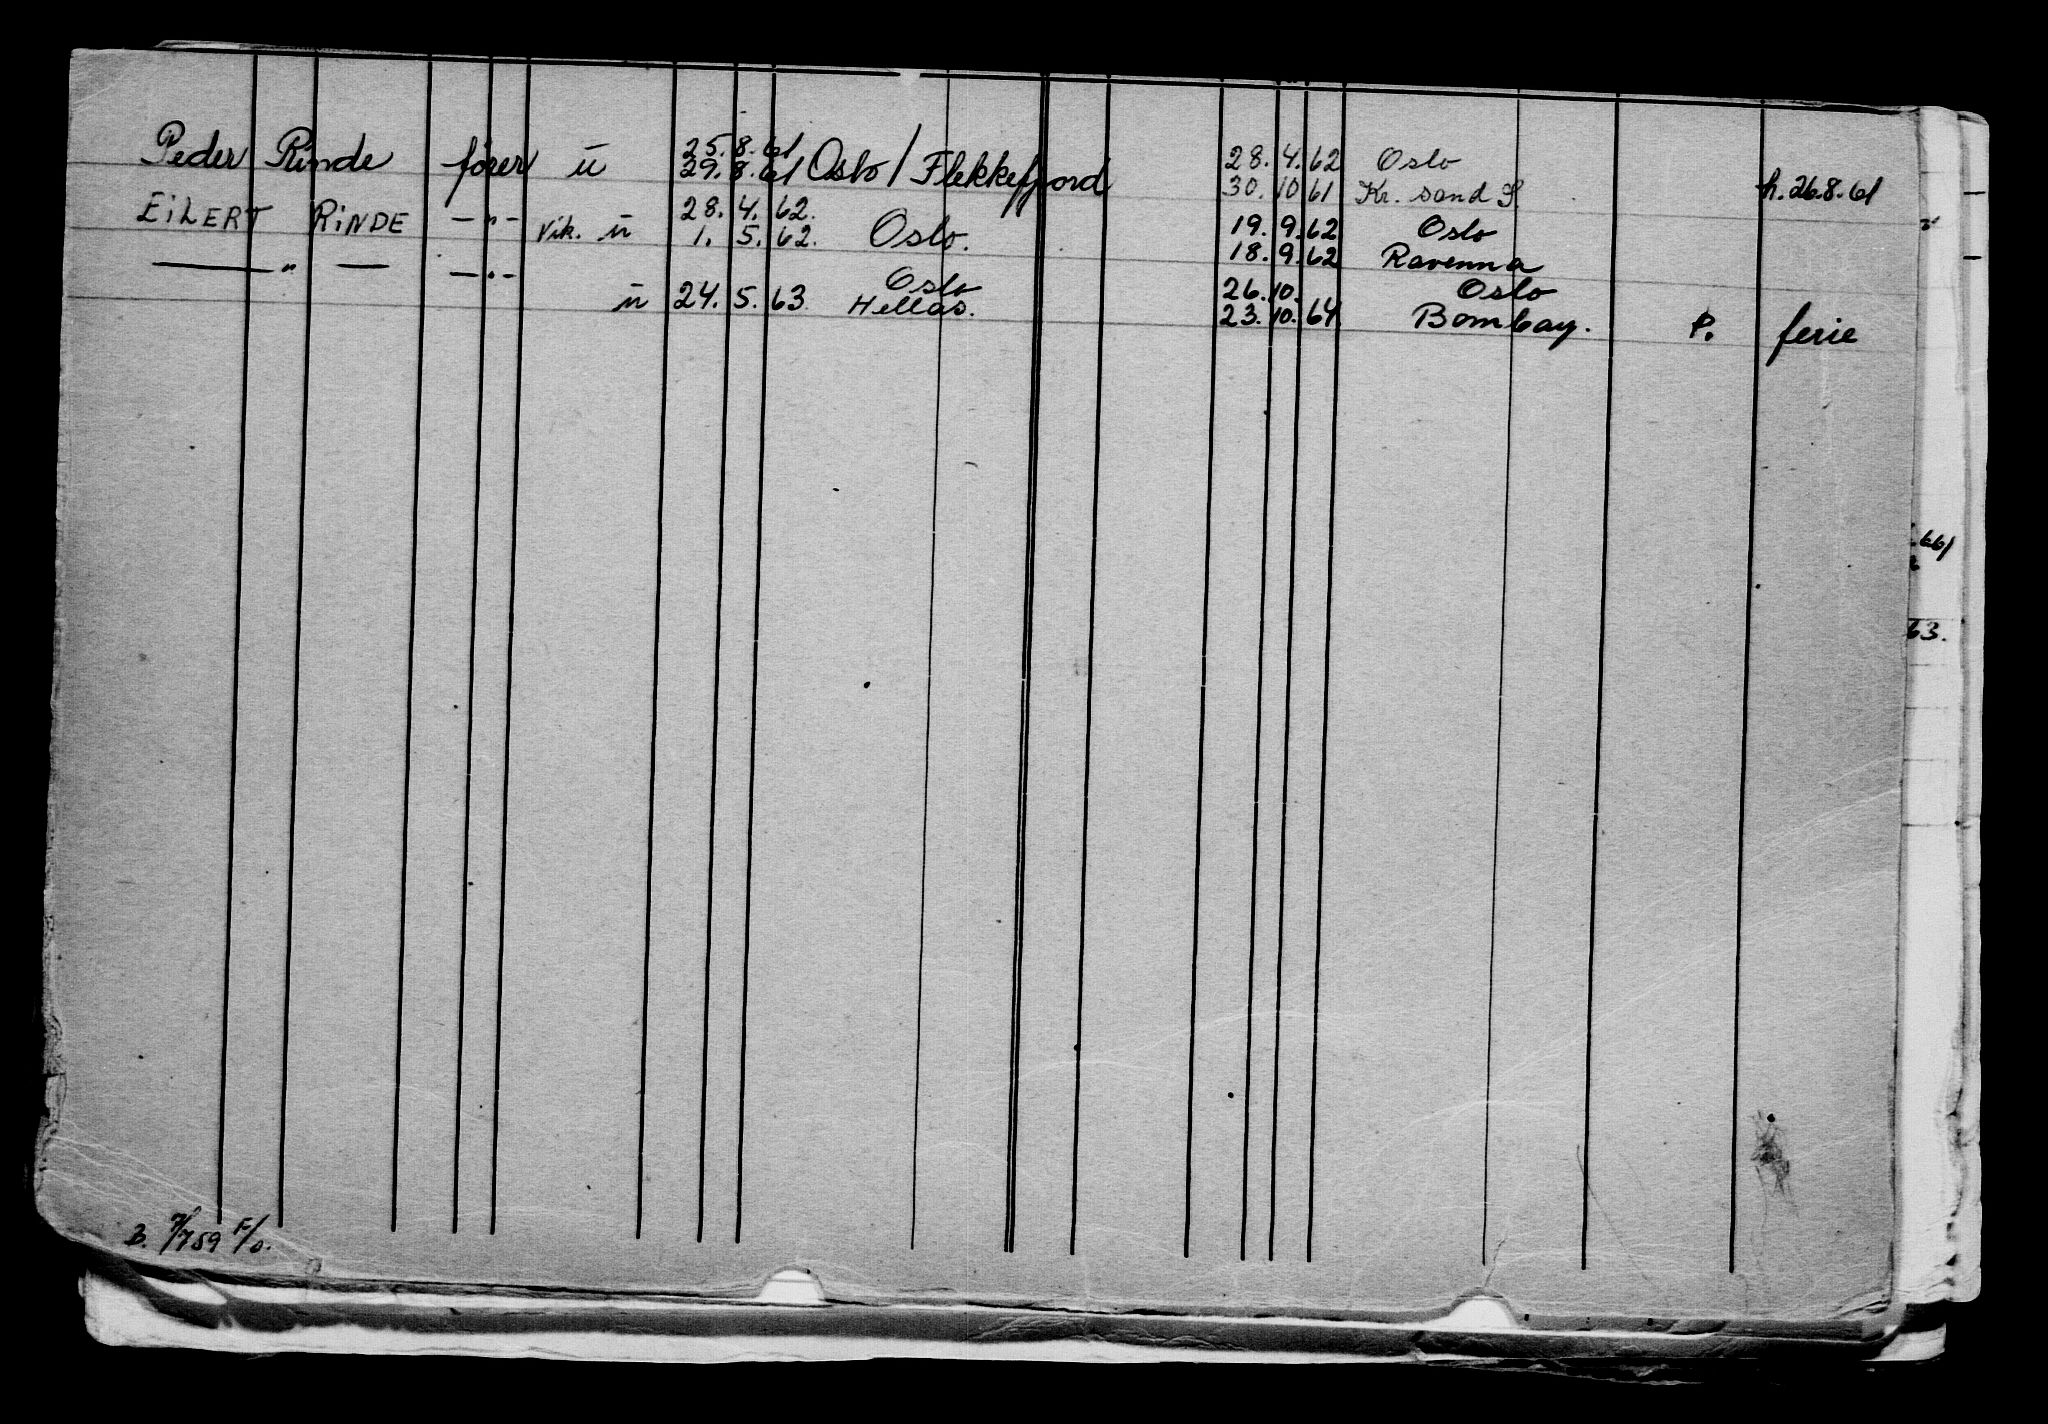 25.8.61 28.4.62 Oslo
Peder Rinde fører ū 29.8.61 Oslo / Flekkefjord 30.10.61 Kr. sand S h. 26.8.61
EiLERT RiNDE —"— 28.4.62. 19.9.62 Oslo
vik. ū 1.5.62. Oslo. 18.9.62 Ravenna
—"— —"— Oslo 26.10. Oslo
ū 24.5.63 Hellas. 23.10.64 Bombay. P. ferie
.661
63.
B. 7/759 F/o.